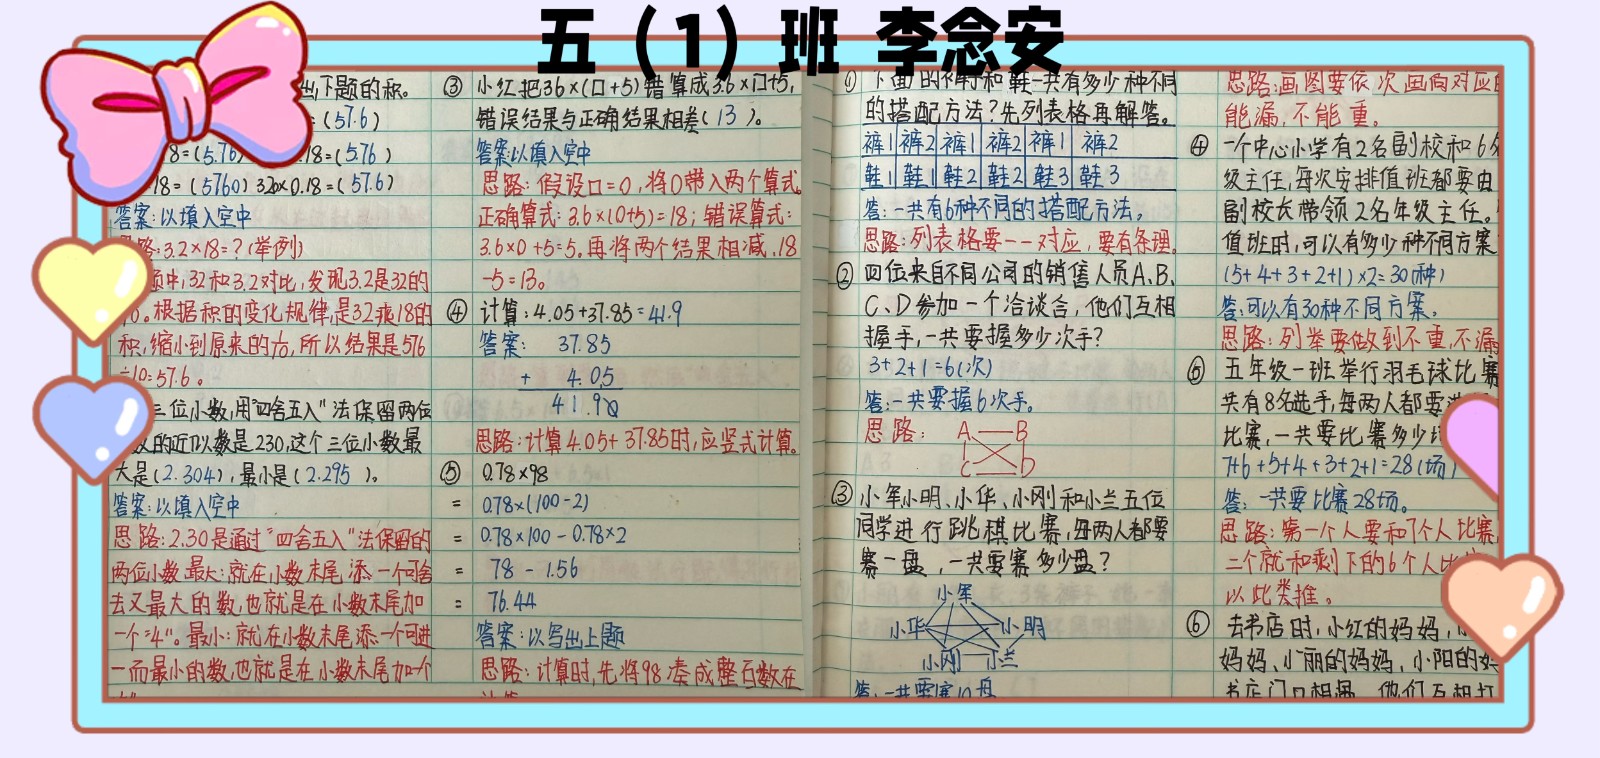 五（1）班 李念安
出下题的积。
=(57.6)
8=(5.76) .18=(5.76)
18=(5760) 320×0.18=(57.6)
答案:以填入空中
思路:3.2×18=?(举例)
题中,32和3.2对比,发现3.2是32的
。根据积的变化规律,是32乘18的
积,缩小到原来的,所以结果是576
÷10=57.6。
三位小数,用"四舍五入"法保留两位
数的近似数是2.30,这个三位小数最
大是(2.304),最小是(2.295)。
答案:以填入空中
思路:2.30是通过"四舍五入"法保留的
两位小数,最大:就在小数末尾添一个可舍
去又最大的数,也就是在小数末尾加
一个"4"。最小:就在小数末尾添一个可进
一而最小的数,也就是在小数末尾加一个
③ 小红把3.6×(口+5)错算成3.6×口+5,
错误结果与正确结果相差(13)。
答案:以填入空中
思路:假设口=0,将0带入两个算式。
正确算式:3.6×(0+5)=18;错误算式:
3.6×0+5=5。再将两个结果相减,18
-5=13。
④ 计算:4.05+37.85=41.9
答案: 37.85
+ 4.05
41.90
思路:计算4.05+37.85时,应竖式计算。
⑤ 0.78×98
= 0.78×(100-2)
= 0.78×100-0.78×2
= 78-1.56
= 76.44
答案:以写出上题
思路:计算时,先将98凑成整百数在
① 下面的裤和鞋一共有多少种不同
的搭配方法?先列表格再解答。
裤1 裤2 裤1 裤2 裤1 裤2
鞋1 鞋1 鞋2 鞋2 鞋3 鞋3
答:一共有6种不同的搭配方法。
思路:列表格要一一对应,要有条理。
② 四位来自不同公司的销售人员A、B、
C、D参加一个洽谈会,他们互相
握手,一共要握多少次手?
3+2+1=6(次)
答:一共要握6次手。
思路: A B
C D
③ 小军、小明、小华、小刚和小兰五位
同学进行跳棋比赛,每两人都要
赛一盘,一共要赛多少盘?
小军
小华 小明
小刚 小兰
答:一共要赛10盘
思路:画图要依次画向对应
能漏,不能重。
④ 一个中心小学有2名副校和6
级主任,每次安排值班都要由
副校长带领2名年级主任。
值班时,可以有多少种不同方案
(5+4+3+2+1)×2=30(种)
答:可以有30种不同方案。
思路:列举要做到不重,不漏
⑤ 五年级一班举行羽毛球比赛
共有8名选手,每两人都要
比赛,一共要比赛多少
7+6+5+4+3+2+1=28(场)
答:一共要比赛28场。
思路:第一个人要和7个人比赛,
二个就和剩下的6个人比
以此类推。
⑥ 去书店时,小红的妈妈,
妈妈、小丽的妈妈,小阳的妈
书店门口相遇,他们互相打